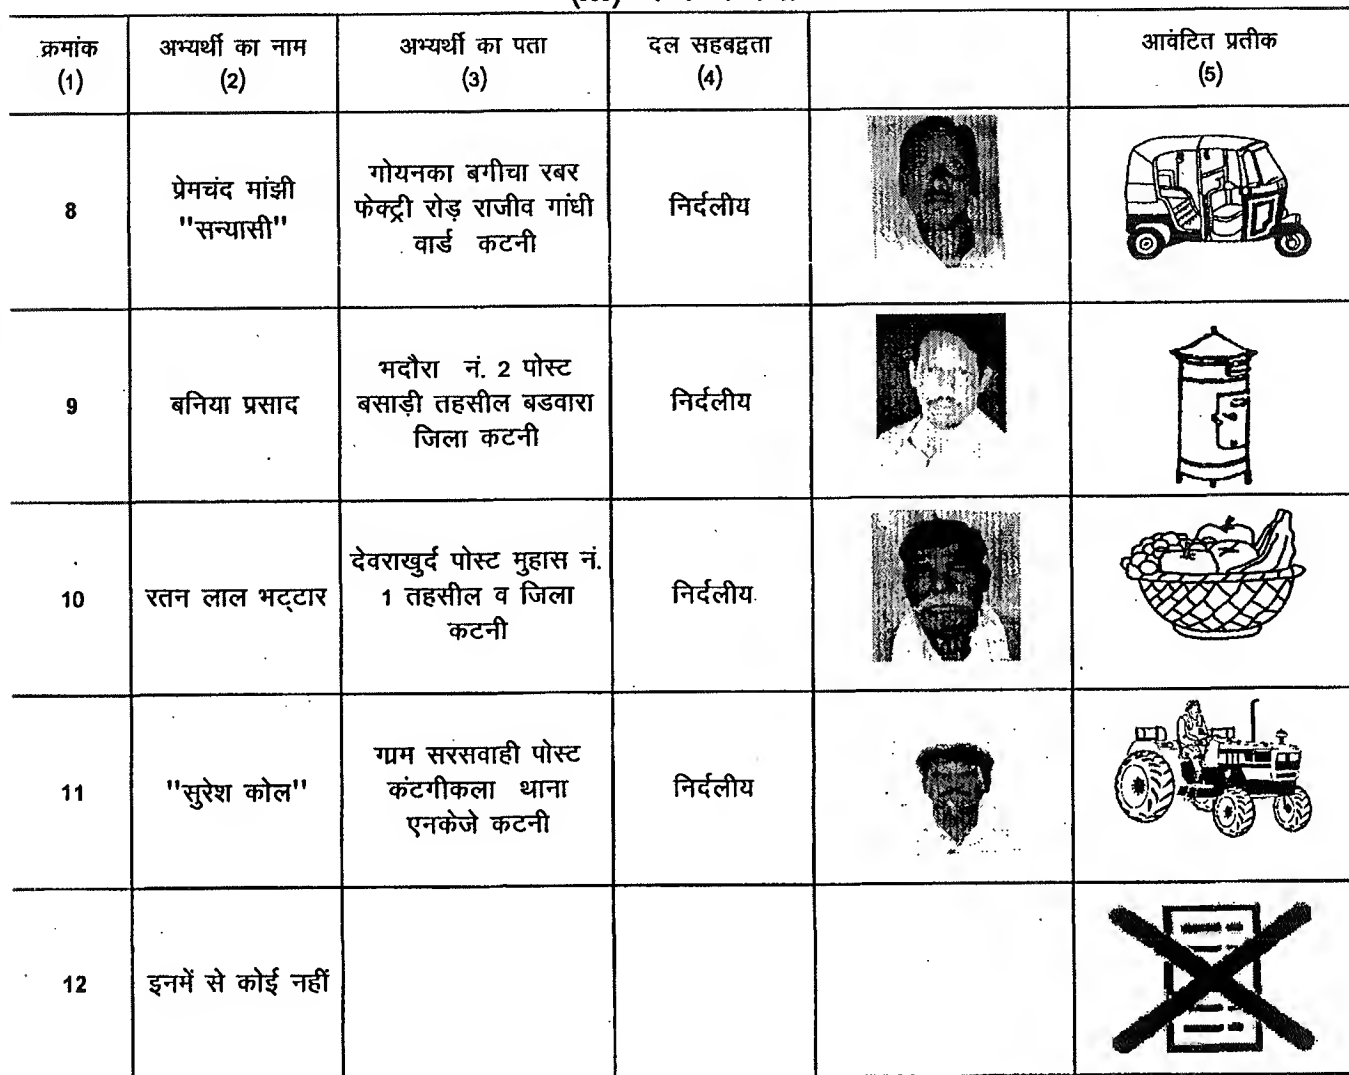 क्रमांक
(1)
अभ्यर्थी का नाम
(2)
अभ्यर्थी का पता
(3)
दल सहबद्वता
(4)
आवंटित प्रतीक
(5)
8
प्रेमचंद मांझी
"सन्यासी"
गोयनका बगीचा रबर
फेक्ट्री रोड़ राजीव गांधी
वार्ड कटनी
निर्दलीय
9
बनिया प्रसाद
भदौरा नं. 2 पोस्ट
बसाड़ी तहसील बडवारा
जिला कटनी
निर्दलीय
10
रतन लाल भट्टार
देवराखुर्द पोस्ट मुहास नं.
1 तहसील व जिला
कटनी
निर्दलीय
11
"सुरेश कोल"
ग्राम सरसवाही पोस्ट
कंटगीकला थाना
एनकेजे कटनी
निर्दलीय
12
इनमें से कोई नहीं